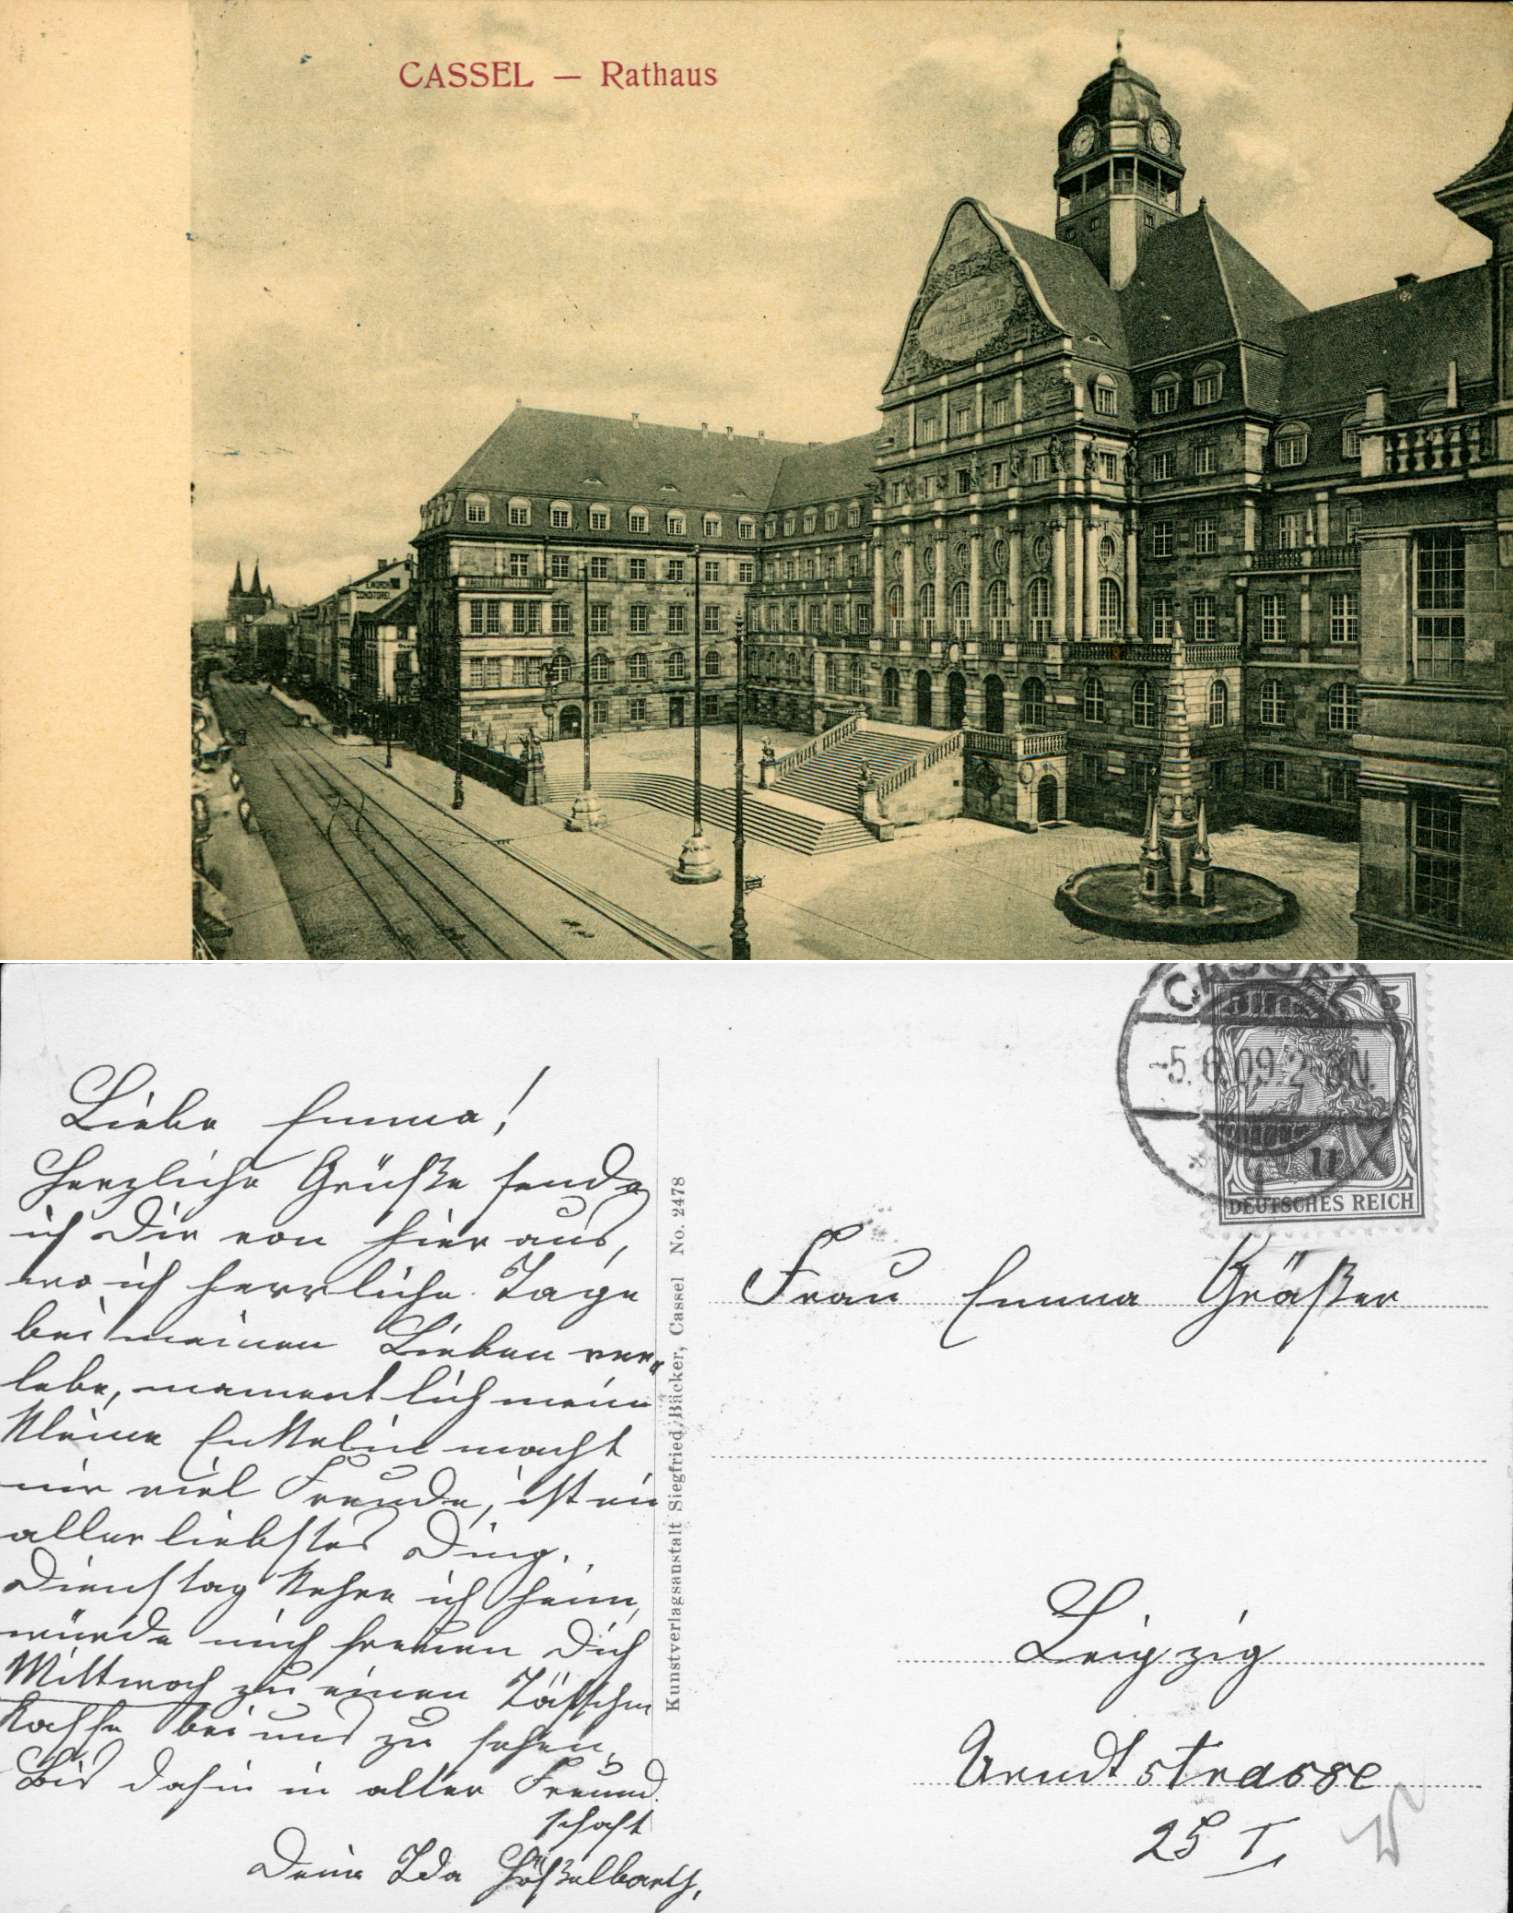 CASSEL — Rathaus
CONDITOREI
Liebe Emma!
Herzliche Grüße sende
ich Dir von hier aus,
wo ich herrliche Tage
bei meinen Lieben ver-
lebe, namentlich meine
kleine Enkelin macht
mir viel Freude, ist ein
allerliebstes Ding.
Dienstag kehre ich heim,
würde mich freuen Dich
Mittwoch zu einen Täßchen
Kaffee bei uns zu sehen.
Bis dahin in alter Freund-
schaft
Deine Ida
Kunstverlagsanstalt Siegfried Bäcker, Cassel No. 2478
CASSEL
5
-5.6.09.2-3N.
DEUTSCHES REICH
Frau Emma Gräßer
Leipzig
Arndtstrasse
25 I